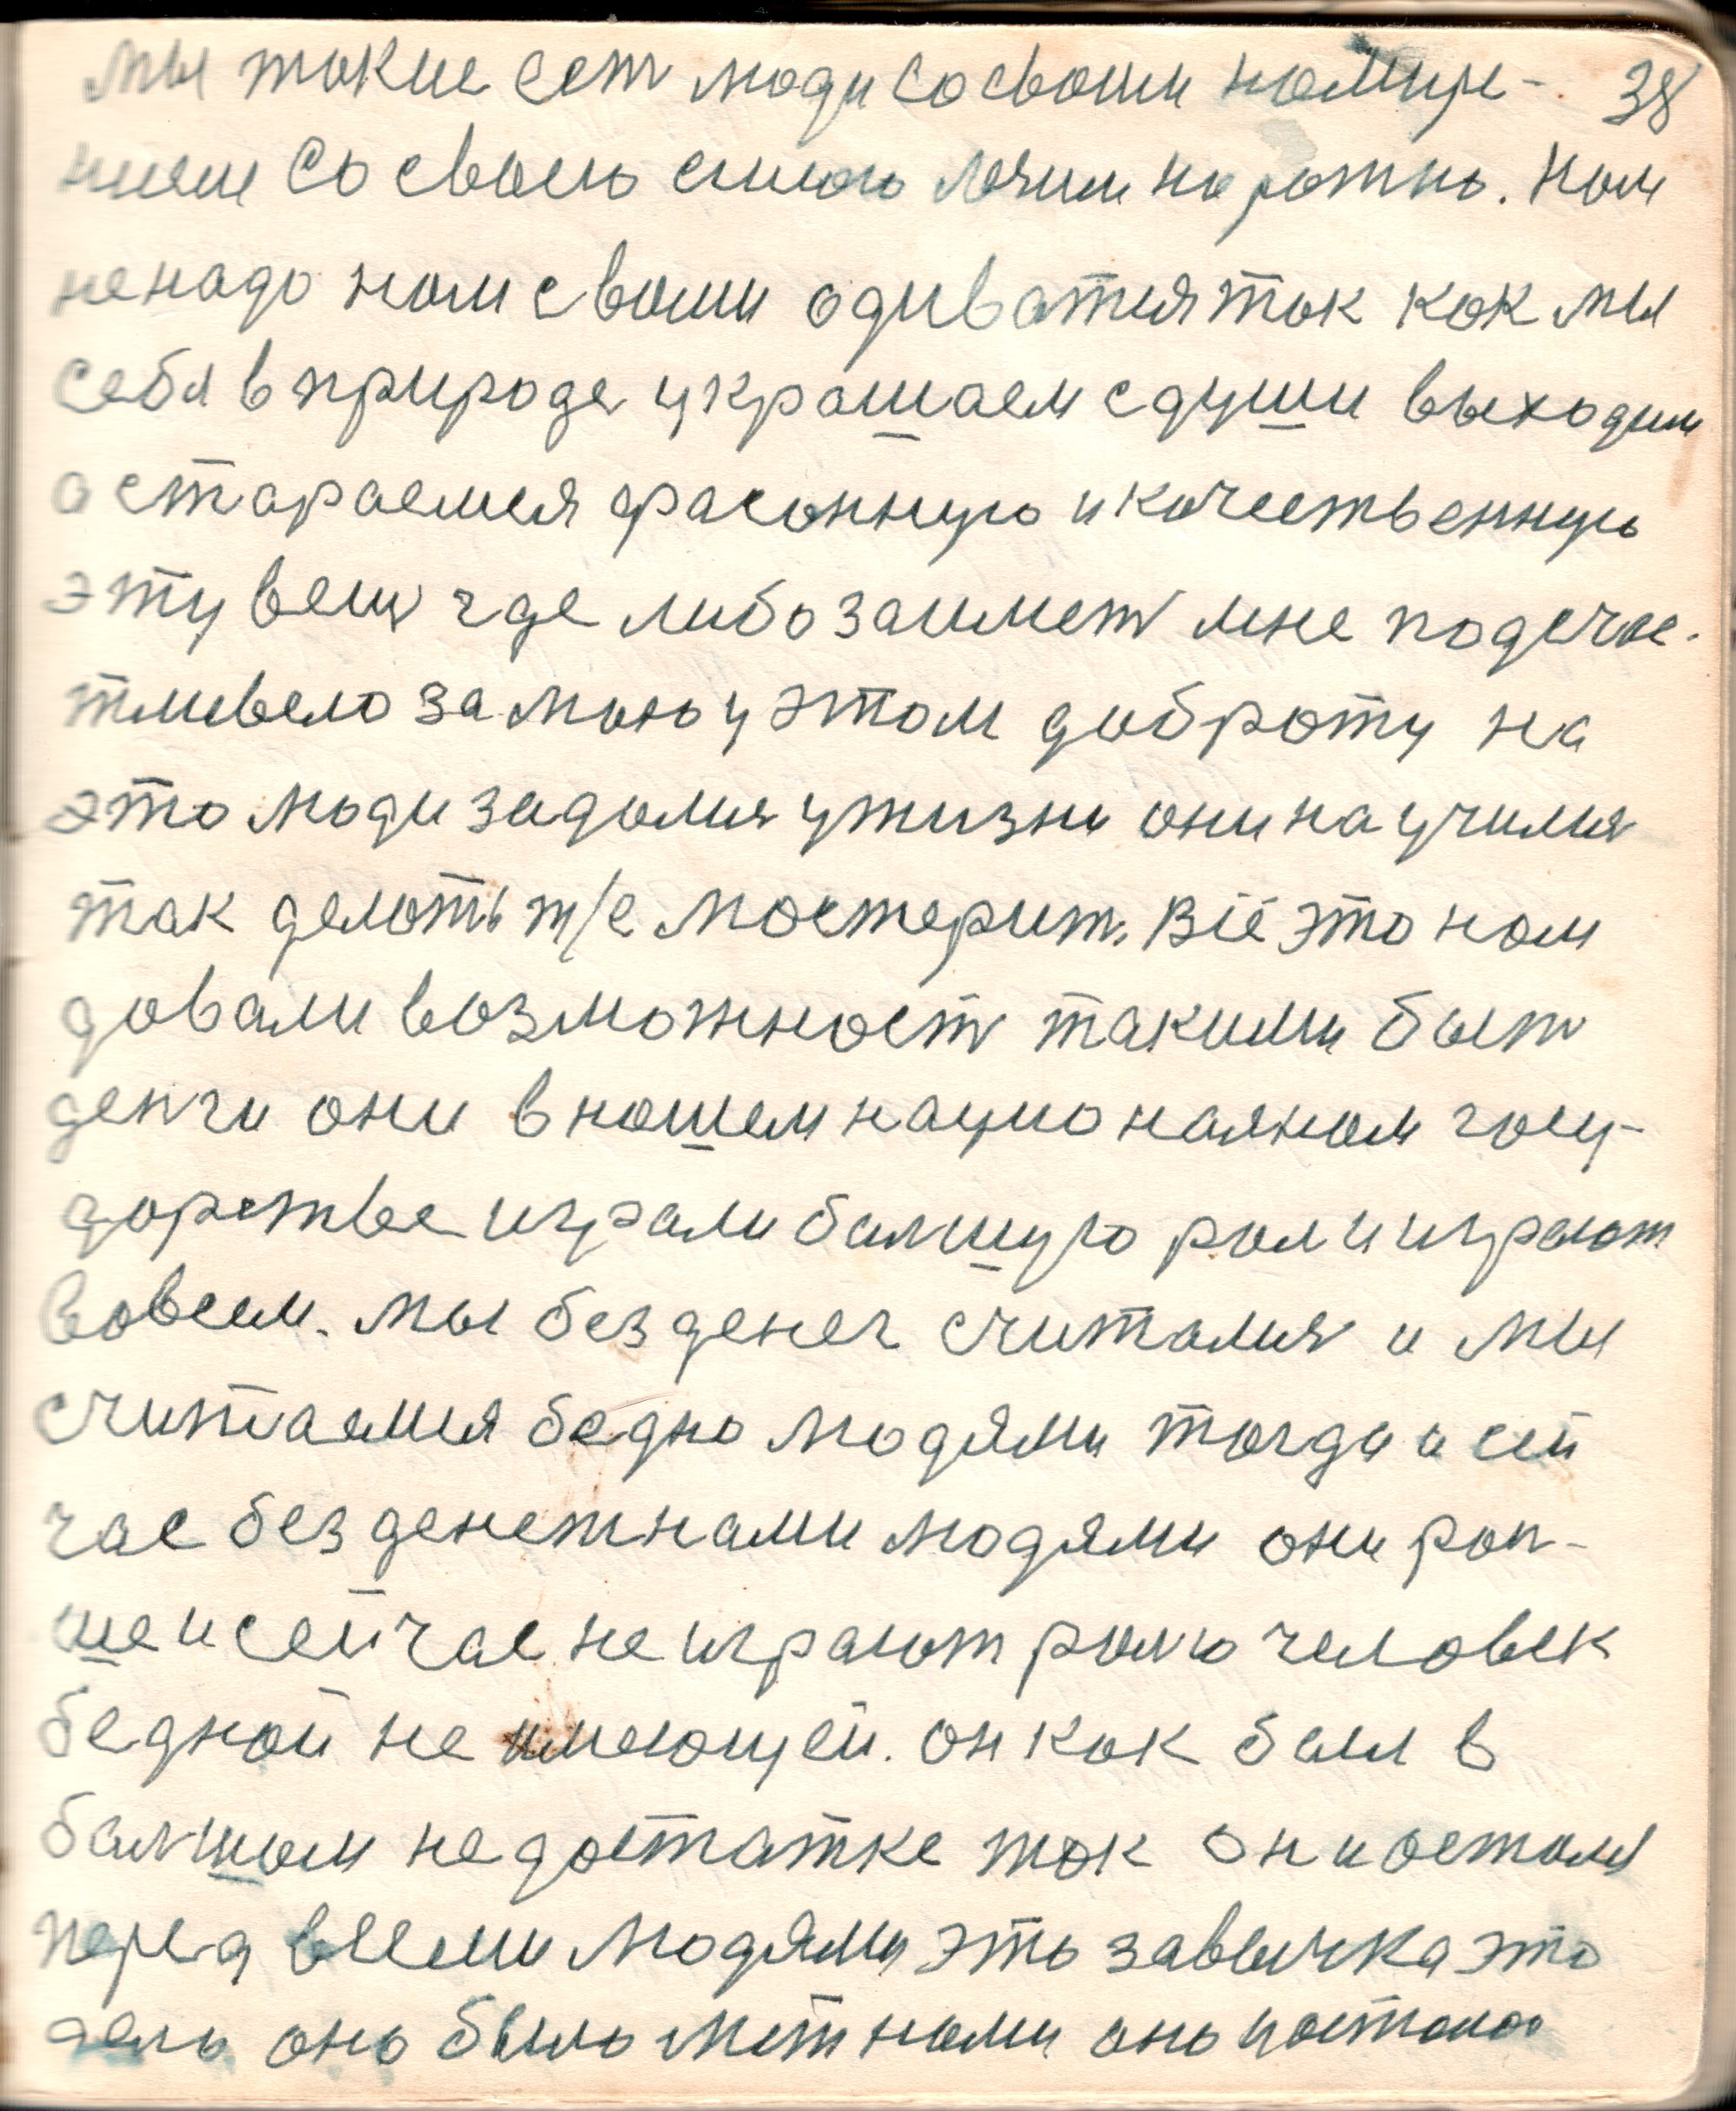 мы такие сет люди со своими намире- 38
нием со своею силою лячи напротив. Нам
не надо нам с вами одиватся так как мы
себя в природе украшаем с души выходим
а стараемся фасонную и качественную
эту вещ где либо заимет мне подсчас-
тливело за мою у этом доброту на
это люди задалис у жизни они научилис
так делоть т/е мостерит. Всё это нам
довали возможност такими быт
денги они в нашем нацио налном госу-
дорстве играли балшую рол и играют
вовсем. мы без денег считалис и мы
считаемся бедно людями тогда и сей
час без денежнами людями они ран-
ше и сейчас не играют ролю человек
бедной не имеющей. он как был в
балшом недостатке так он и осталс
перед всеми людями это завычка это
дело оно было меж нами оно и осталос